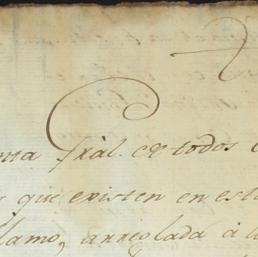 Gral. de todos
que existen en est
lamo, arreglada á l